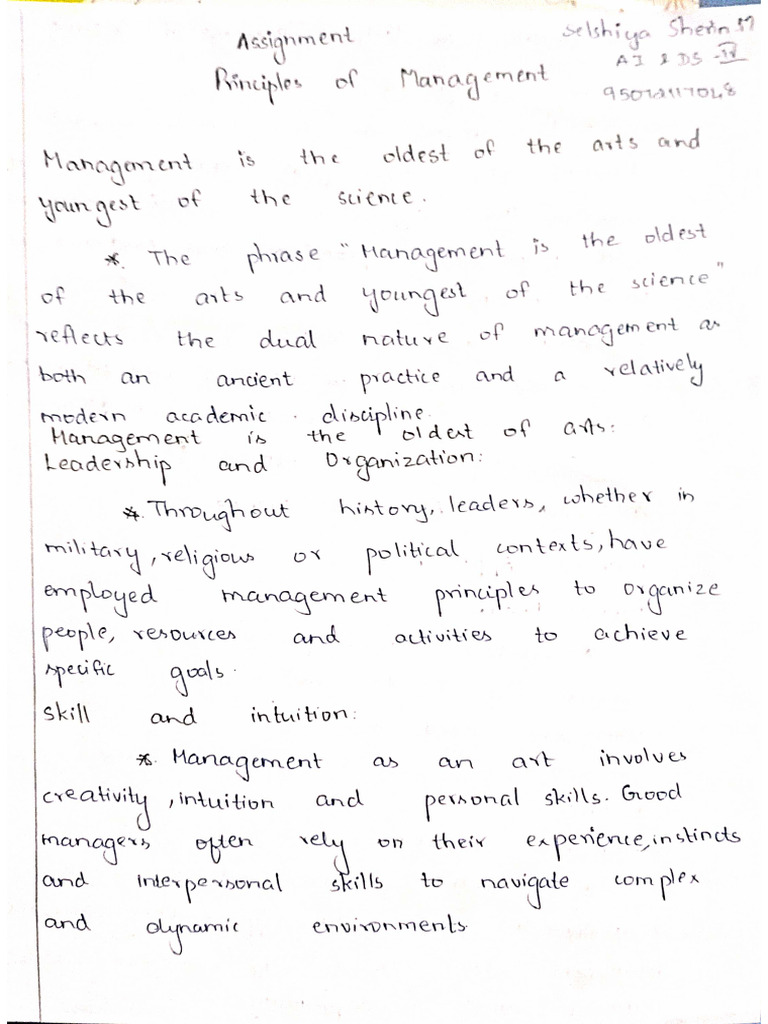 Assignment
Selshiya Sherin
Principles of Management
AI & DS - IV
Management is the oldest of the arts and
youngest of the science.
*. The phrase "Management is the oldest
of the arts and youngest of the science"
reflects the dual nature of management as
both an ancient practice and a relatively
modern academic discipline.
Management is the oldest of arts:
Leadership and Organization:
*. Throughout history, leaders, whether in
military, religious or political contexts, have
employed management principles to organize
people, resources and activities to achieve
specific goals.
Skill and intuition:
*. Management as an art involves
creativity, intuition and personal skills. Good
managers often rely on their experience, instincts
and interpersonal skills to navigate complex
and dynamic environments.